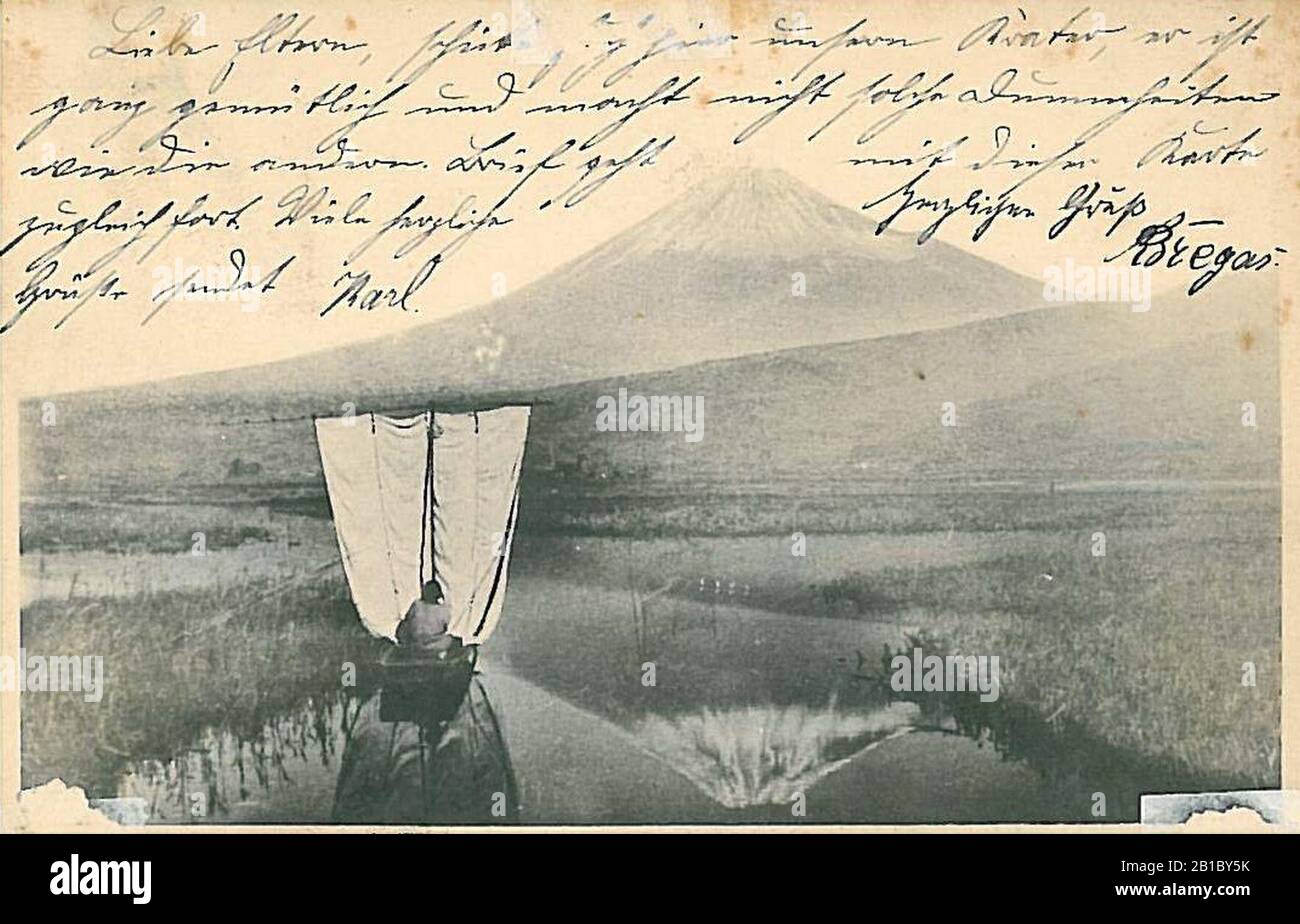 Liebe Eltern, hier unsern Krater, er ist
ganz gemütlich und macht nicht solche Dummheiten
wie die andern. Brief geht mit dieser Karte
zugleich fort. Viele herzliche
Grüße sendet Karl.
Herzlichen Gruß
alamy
Image ID: 2B1BY5K
www.alamy.com